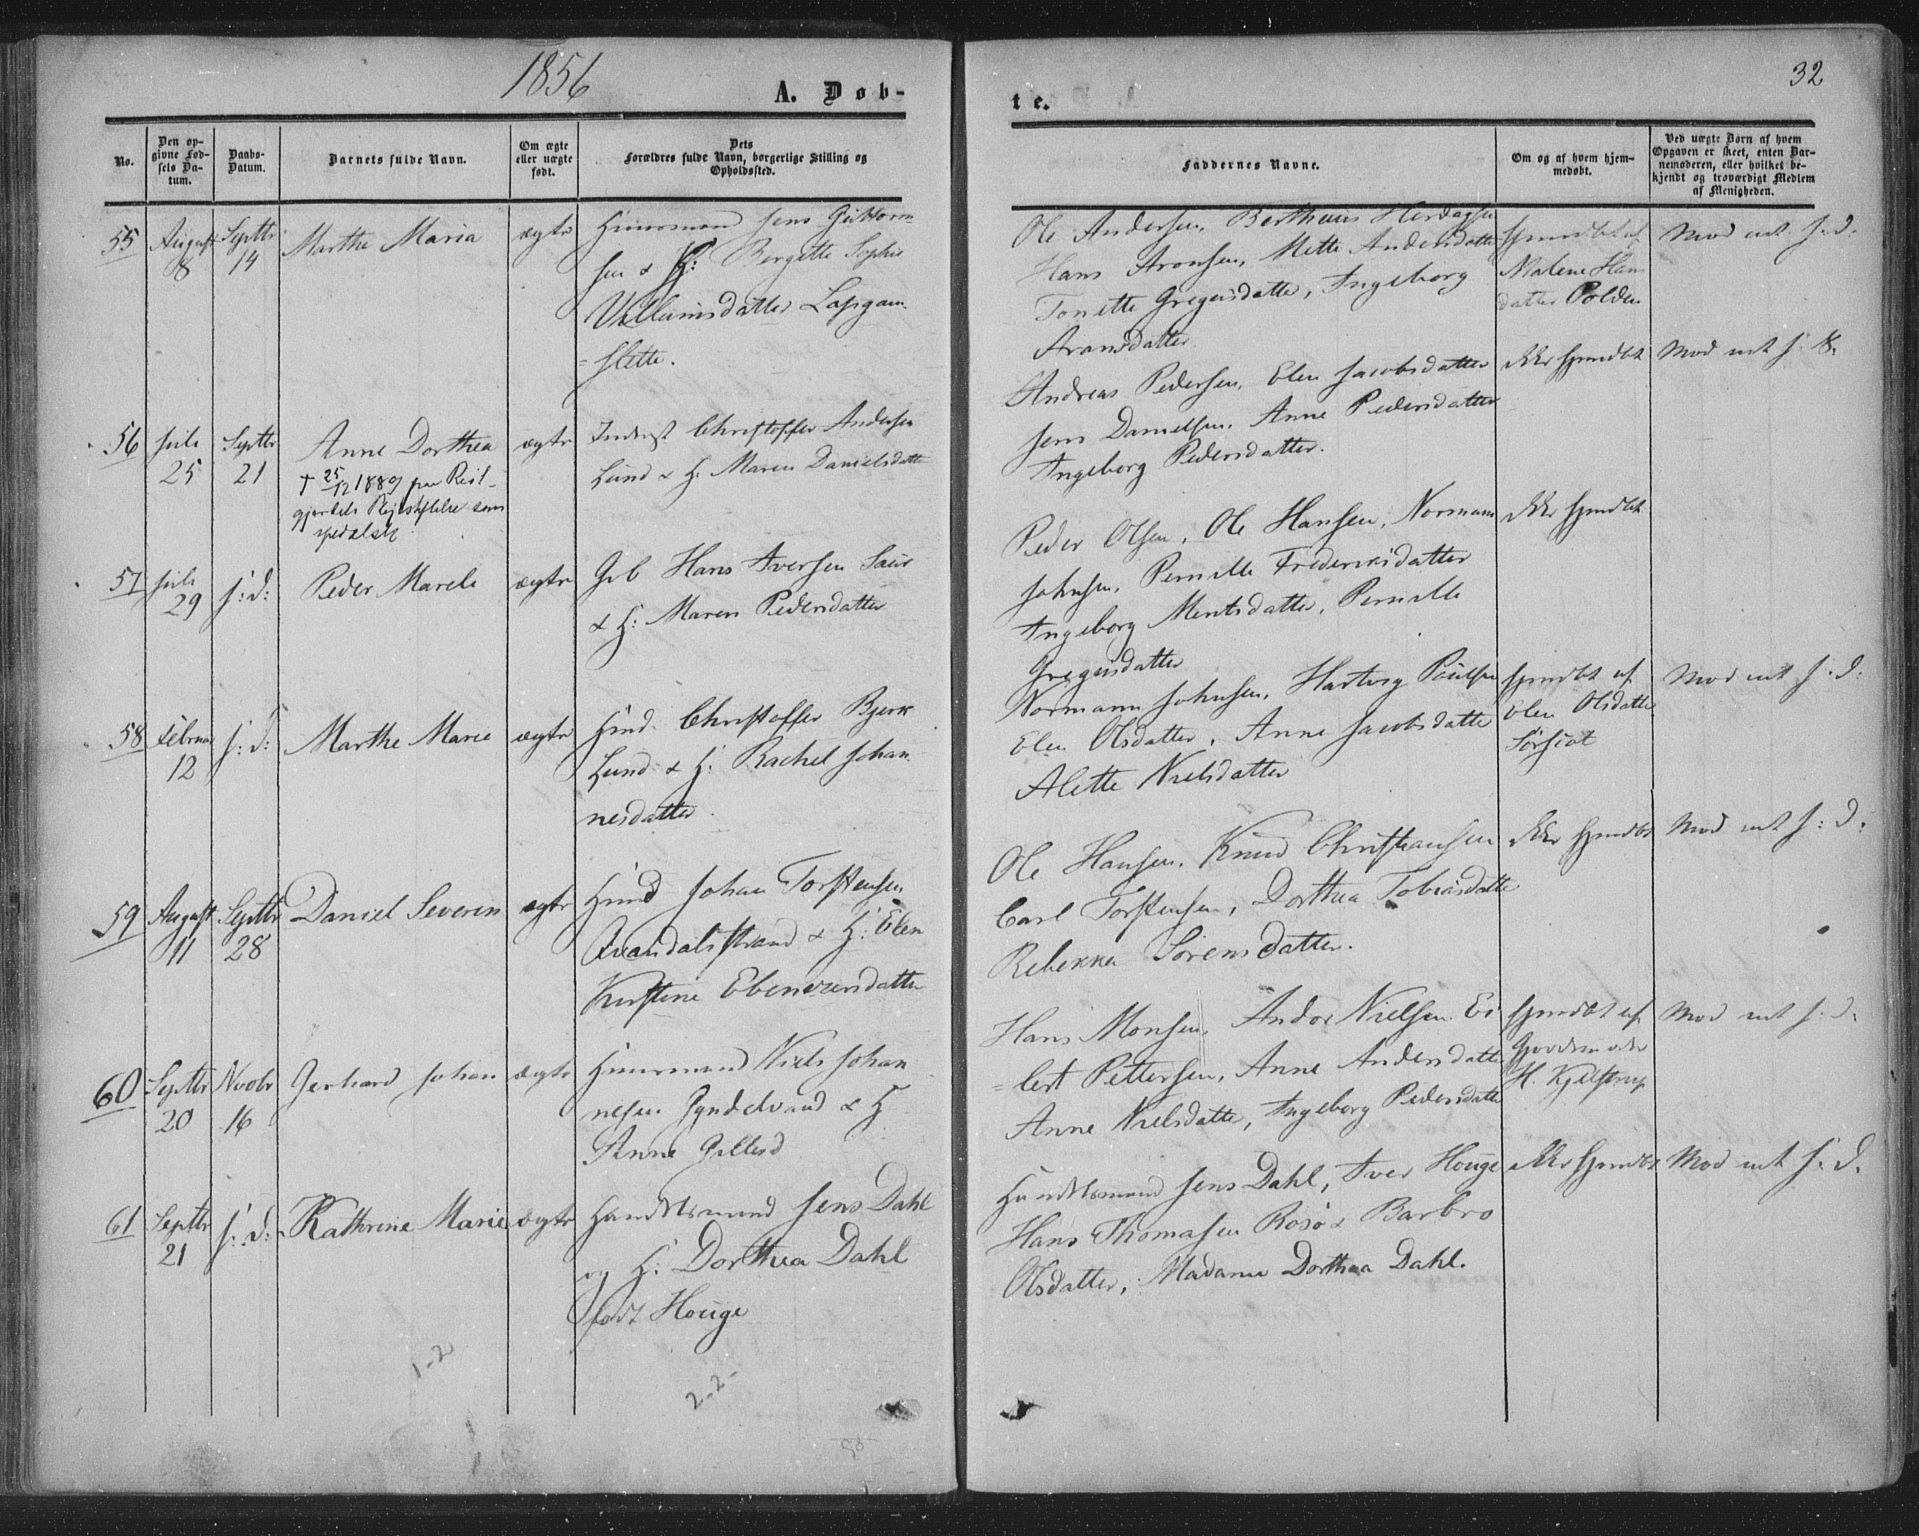 1856
A. Døb-
No.
Den op-
givne Fød-
sels Da-
tum.
Daabs-
Datum.
Barnets fulde Navn.
Om ægte
eller uægte
født.
Dets
Forældres fulde Navn, borgerlige Stilling og
Opholdssted.
55
August
8
Septbr
14
Marthe Maria
ægte
Huusmand Jens Guttorm
sen & H: Bergette Sophie
Villumsdatter
slette.
56
Juli
25
Septbr
21
Anne Dorthea
† 25/12 1889 paa Reit-
gjerdets Plejestiftelse som
spedalsk
ægte
Inderst Christoffer Andersen
Lund & H. Maren Danielsdatter
57
Juli
29
s: d:
Peder Mareli
ægte
Gb Hans Iversen Saur
& H: Maren Pedersdatter
58
Februar
12
s: d:
Marthe Marie
ægte
Huusd. Christoffer Bjerk
Lund & H: Rachel Johan
nesdatter
59
August
11
Septbr
28
Daniel Severin
ægte
Huusd Johan Torstensen
& H: Elen
Kirstine Ebenersdatter
60
Septbr
20
Novbr
16
Gerhard Johan
ægte
Huusmand Niels Johan
nesen & H
Anne
61
Septbr
21
s: d:
Kathrine Marie
ægte
Handelsmand Jens Dahl
og H: Dorthea Dahl
født Houge
1-2
2-2-
te.
32
Faddernes Navne.
Om og af hvem hjem-
medøbt.
Ved uægte Børn af hvem
Opgaven er skeet, enten Bar-
nemoderen, eller hvilket be-
kjendt og troværdigt Medlem
af Menigheden.
Ole Andersen, Bertheus
Hans Aronsen, Mette Andersdatter
Tonette Gregersdatter, Ingeborg
Aronsdatter
hjemdøbt af
Malene Hans
datter Polden
Mod att s: d:
Andreas Pedersen, Elen Jacobsdatter
Jens Danielsen, Anne Pedersdatter
Ingeborg Pedersdatter.
ikke hjemdøbt
Mod att s: d:
Peder Olsen, Ole Hansen, Normann
Johnsen, Pernille Frederiksdatter
Ingeborg Mentsdatter, Pernille
Gregersdatter
ikke hjemdøbt
Normann Johnsen, Hartvig Poulsen
Elen Olsdatter, Anne Jacobsdatter
Alette Nielsdatter
hjemdøbt af
Elen Olsdatter
Mod att s: d:
Ole Hansen, Knud Christiansen
Carl Torstensen, Dorthea Tobiasdatter
Rebekka Sørensdatter.
ikke hjemdøbt
Mod att s: d:
Hans Monsen, Andor Nielsen Ei
=lert Pettersen, Anne Andersdatter
Anne Nielsdatter, Ingeborg Pedersdatter
hjemdøbt af
Gjordemoder
H. Kjelstrup
Mod att s: d:
Handelsmand Jens Dahl, Iver Houge
Hans Thomasen Rosø & Barbro
Olsdatter, Madame Dorthea Dahl.
ikke hjemdøbt
Mod att s: d.